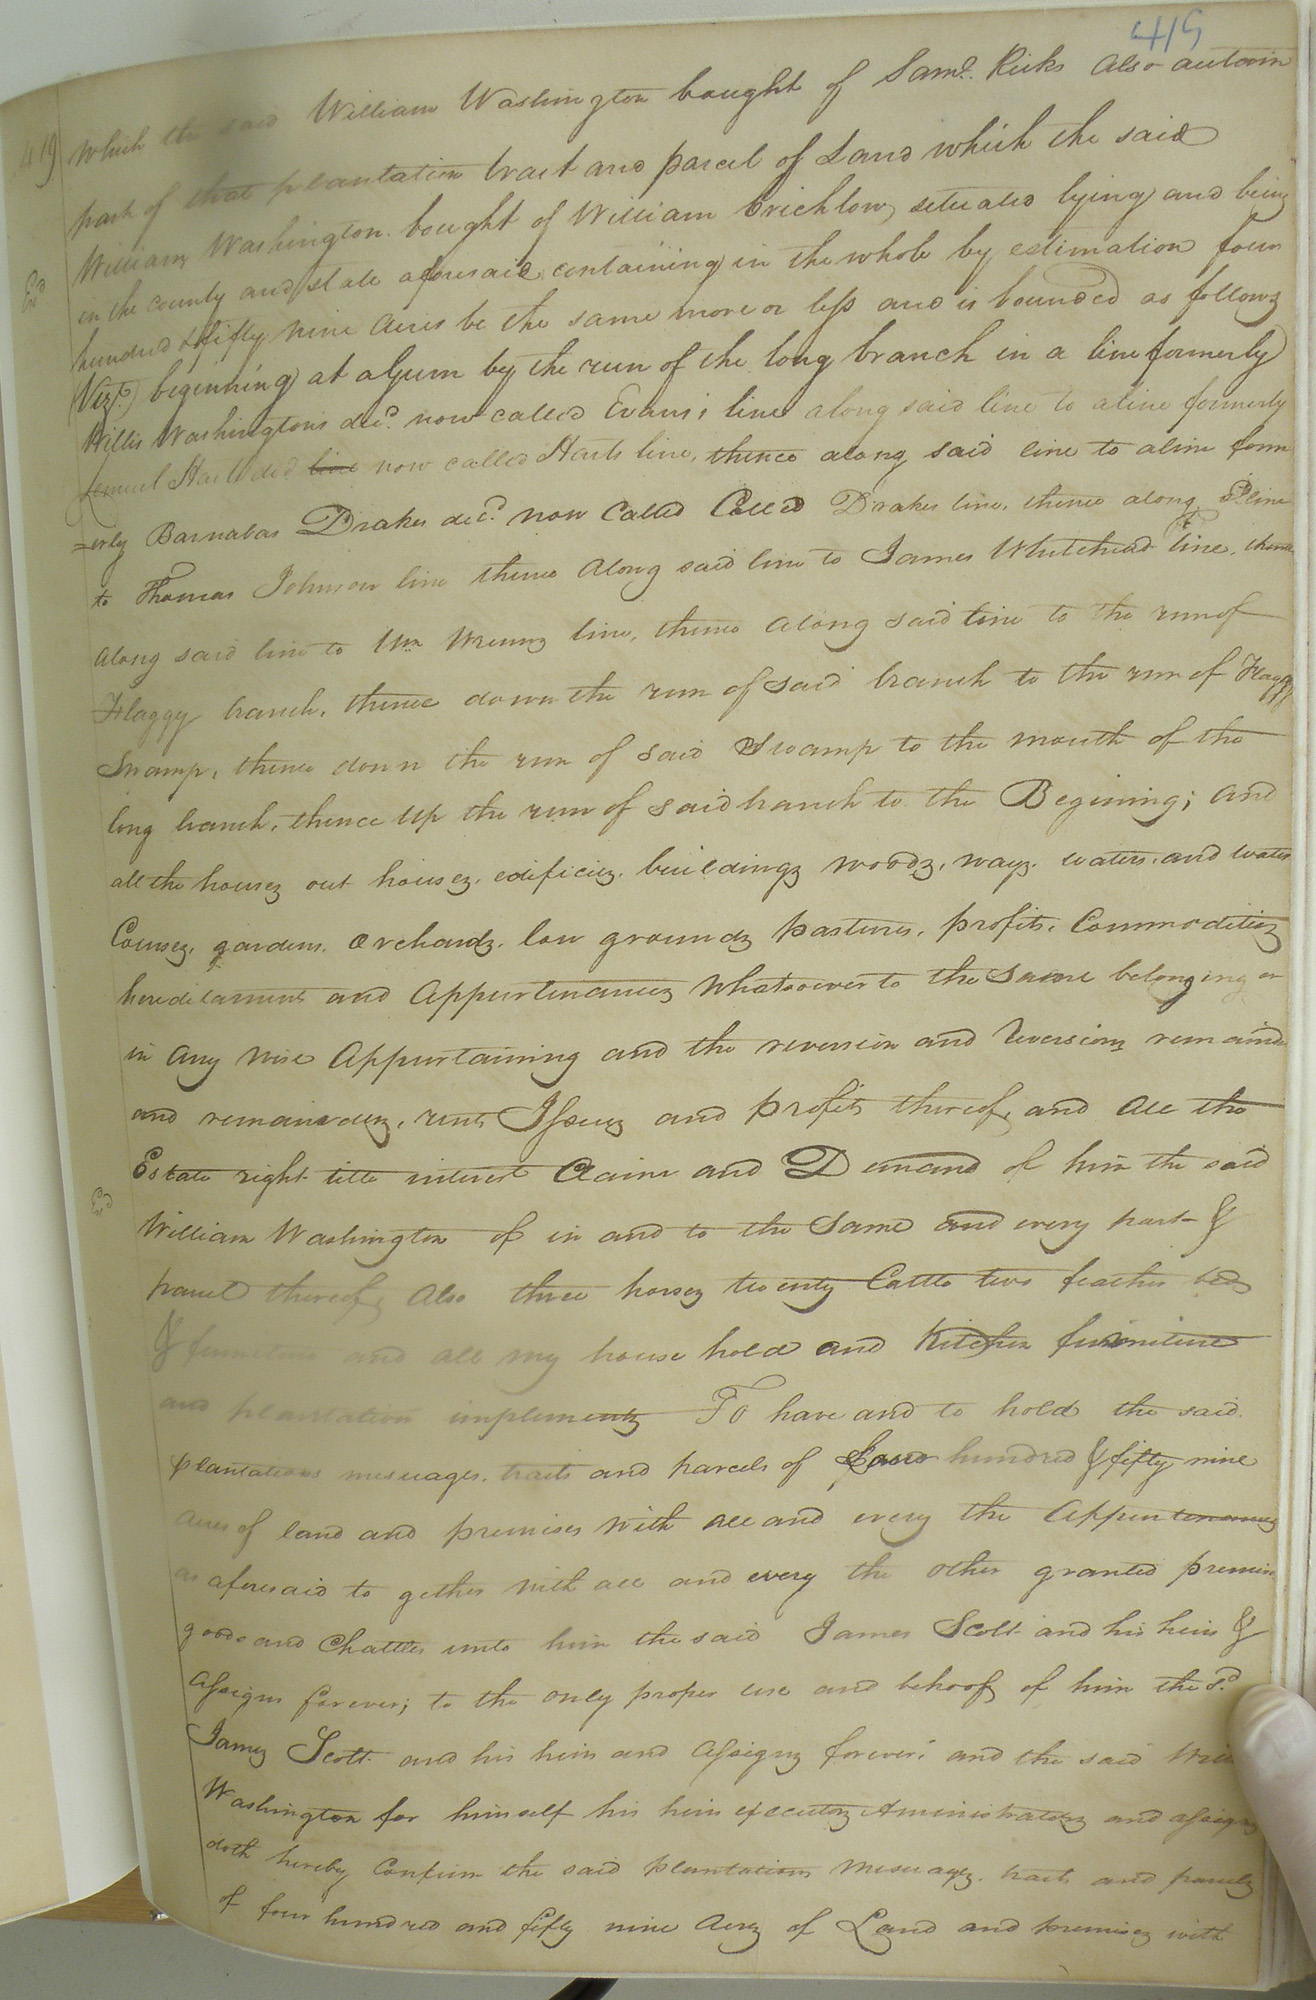 419
419
which the said William Washington bought of Saml. Ricks also a certain
part of that plantation tract and parcel of Land which the said
William Washington bought of William Crichlow situated lying and being
in the county and state aforesaid containing in the whole by estimation four
hundred & fifty nine acres be the same more or less and is bounded as follows
(Vizt.) beginning at a Gum by the run of the long branch in a line formerly
Willis Washingtons decd. now called Evans's line along said line to a line formerly
Lemuel Harts decd line now called Harts line, thence along said line to a line form
=erly Barnabas Drakes decd. now Called Called Drakes line, thence along sd. line
to Thomas Johnson line thence along said line to James Whitehead line, thence
along said line to Wm Wrenns line, thence along said line to the run of
Flaggy branch, thence down the run of said branch to the run of Flaggy
Swamp, thence down the run of said Swamp to the mouth of the
long branch, thence up the run of said branch to the Begining; and
all the houses out houses, edifices, buildings woods, ways, waters, and water
Courses, gardens, orchards, low grounds pastures, profits, Commodities
hereditaments and appurtenances whatsoever to the same belonging or
in any wise appurtaining and the reversion and reversions remainder
and remainders, rents Issues and profits thereof, and all the
Estate right title interest Claim and Demand of him the said
William Washington of in and to the same and every part &
parcel thereof, also three horses twenty Cattle two feather beds
& furniture and all my house hold and kitchen furniture
and plantation implements To have and to hold the said
plantations messuages, tracts and parcels of four hundred & fifty nine
acres of land and premises with all and every the appurtenances
as aforesaid to gether with all and every the other granted premises
goods and Chattles unto him the said James Scott and his heirs &
assigns forever; to the only proper use and behoof of him the sd.
James Scott and his heirs and assigns forever; and the said
Washington for himself his heirs executors administrators and assigns
doth hereby confirm the said plantations messuages, tracts and parcels
of four hundred and fifty nine acres of Land and premises with